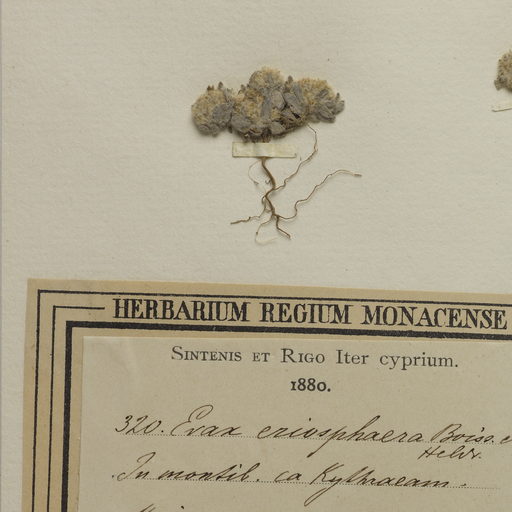 HERBARIUM REGIUM MONACENSE
SINTENIS ET RIGO Iter cyprium.
1880.
320. Evax eriosphaera Boiss. e
Heldr.
In montib. ca Kythraeam.